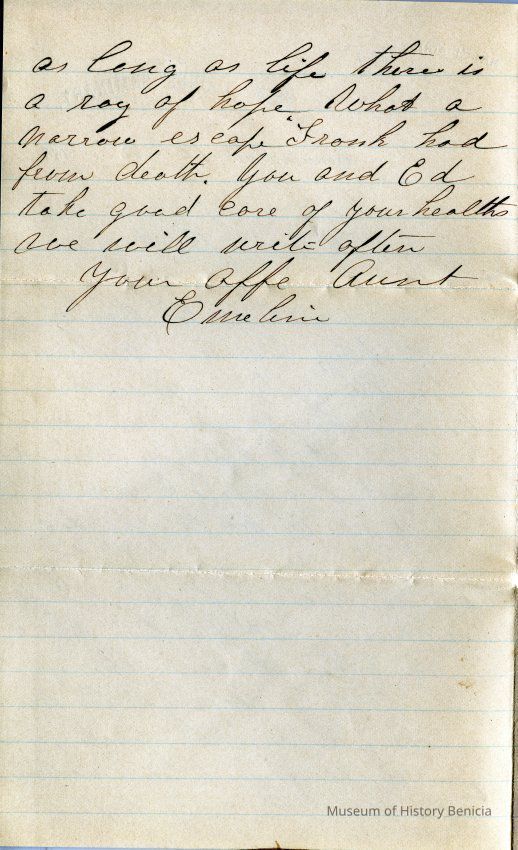 as long as life there is
a ray of hope What a
narrow escape "Frank had
from death. You and Ed
take good care of your healths
we will write often
Your affe Aunt
Emeline
Museum of History Benicia